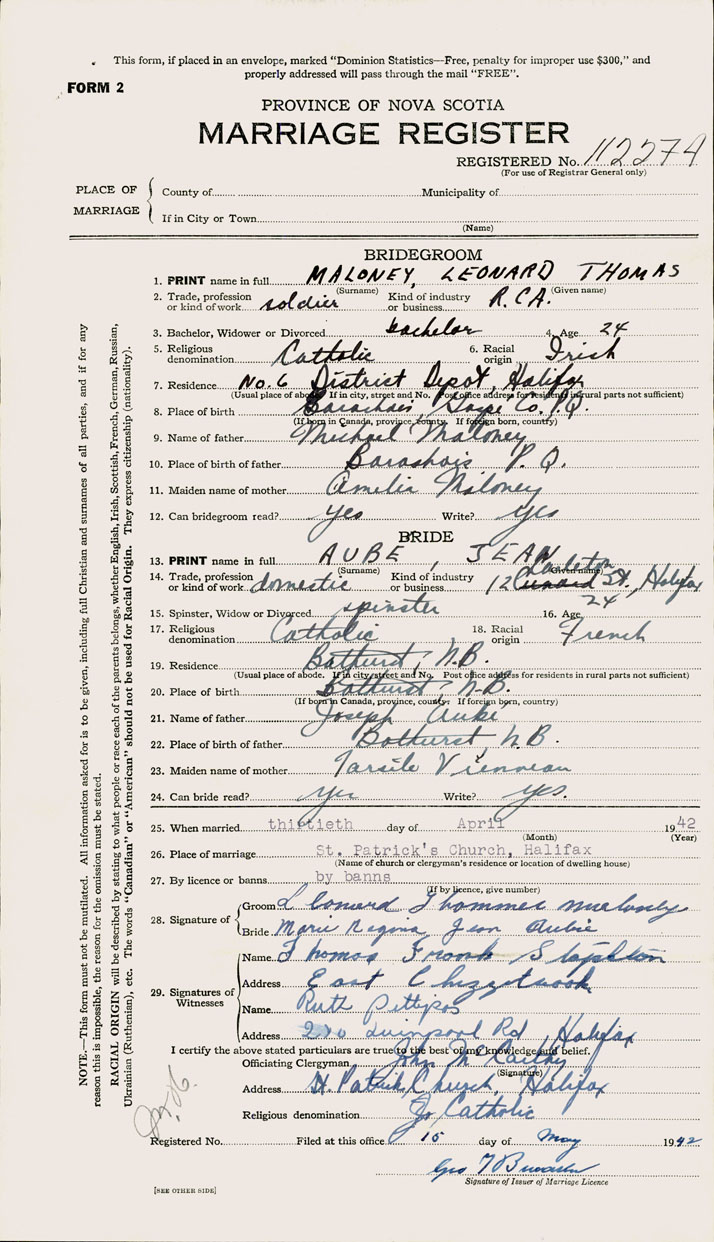 This form, if placed in an envelope, marked "Dominion Statistics—Free, penalty for improper use $300," and
properly addressed will pass through the mail "FREE".
FORM 2
PROVINCE OF NOVA SCOTIA
MARRIAGE REGISTER
REGISTERED No. 112274
(For use of Registrar General only)
PLACE OF MARRIAGE
County of Municipality of
If in City or Town
(Name)
BRIDEGROOM
1. PRINT name in full MALONEY, LEONARD THOMAS
(Surname) (Given name)
2. Trade, profession or kind of work soldier Kind of industry or business R.C.A.
3. Bachelor, Widower or Divorced bachelor 4. Age 24
5. Religious denomination Catholic 6. Racial origin Irish
7. Residence No. 6 District Depot, Halifax
(Usual place of abode. If in city, street and No. Post office address for residents in rural parts not sufficient)
8. Place of birth Barachois Gaspe Co. P.Q.
(If born in Canada, province, county. If foreign born, country)
9. Name of father Michael Maloney
10. Place of birth of father Barashois P.Q.
11. Maiden name of mother Amelia Maloney
12. Can bridegroom read? yes Write? yes
BRIDE
13. PRINT name in full AUBE, JEAN
(Surname) (Given name)
14. Trade, profession or kind of work domestic Kind of industry or business 12 Carleton St, Halifax
15. Spinster, Widow or Divorced spinster 16. Age 24
17. Religious denomination Catholic 18. Racial origin French
19. Residence Bathurst, N.B.
(Usual place of abode. If in city, street and No. Post office address for residents in rural parts not sufficient)
20. Place of birth Bathurst, N.B.
(If born in Canada, province, county: If foreign born, country)
21. Name of father Joseph Aube
22. Place of birth of father Bathurst N.B.
23. Maiden name of mother Tarsile Vienneau
24. Can bride read? yes Write? yes.
25. When married thirtieth day of April 1942
(Month) (Year)
26. Place of marriage St. Patrick's Church, Halifax
(Name of church or clergyman's residence or location of dwelling house)
27. By licence or banns by banns
(If by licence, give number)
28. Signature of
Groom Leonard Thommes Maloney
Bride Marie Regina Jean Aubie
29. Signatures of Witnesses
Name Thomas Frank Stapleton
Address East Chezzetcook
Name Ruth Pettipas
Address Quinpool Rd, Halifax
I certify the above stated particulars are true to the best of my knowledge and belief.
Officiating Clergyman John McCarthy
(Signature)
Address St. Patrick Church, Halifax
Religious denomination Catholic
Registered No. Filed at this office 15 day of May 1942
Geo
Signature of Issuer of Marriage Licence
[SEE OTHER SIDE]
NOTE.—This form must not be mutilated. All information asked for is to be given, including full Christian and surnames of all parties, and if for any
reason this is impossible, the reason for the omission must be stated.
RACIAL ORIGIN will be described by stating to what people or race each of the parents belongs, whether English, Irish, Scottish, French, German, Russian,
Ukrainian (Ruthenian), etc. The words "Canadian" or "American" should not be used for Racial Origin. They express citizenship (nationality).